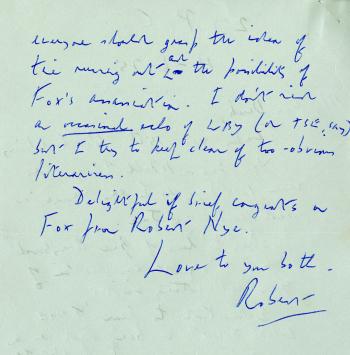 everyone should grasp the idea of
the running out and the possibility of
Fox's assassination. I don't mind
an occasional echo of WBY (or TSE, say)
but I try to keep clear of too-obvious
literariness.
Delightful if brief congrats on
Fox from Robert Nye.
Love to you both.
Robert